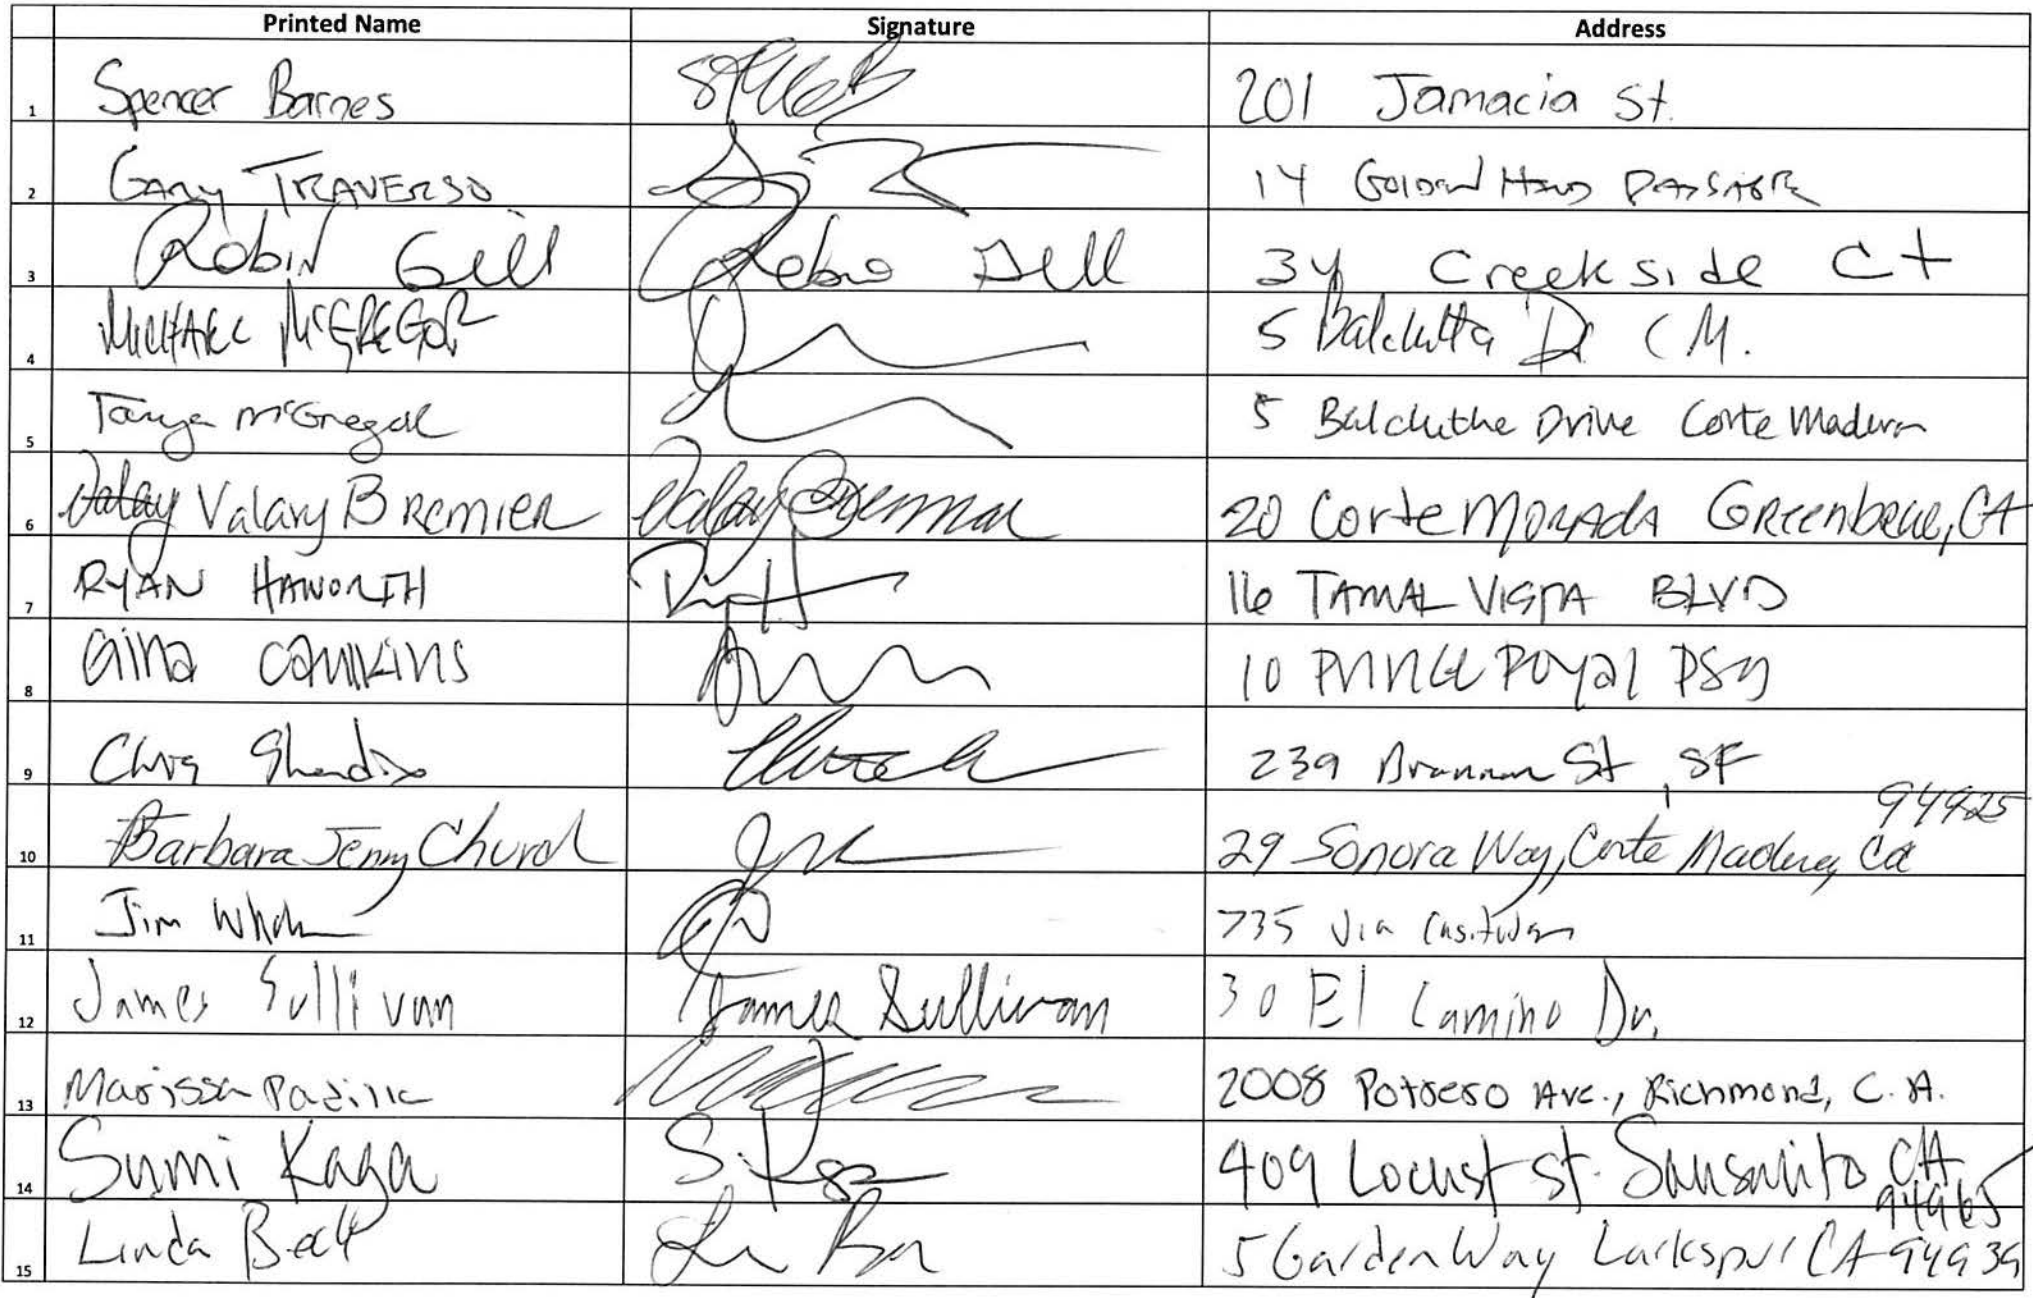 Printed Name Signature Address
1 Spencer Barnes 201 Jamacia St.
2 Gary TRAVERSO 14 Golden Hind PASSAGE
3 Robin Gill Robin Gill 34 Creekside Ct
4 MICHAEL McGREGOR 5 Balclutha Dr CM.
5 Tanya McGregor 5 Balclutha Drive Corte Madera
6 Valary Bremier 20 Corte MORADA Greenbrae, CA
7 RYAN HAWORTH 16 TAMAL VISTA BLVD
8 Gina 10 Prince Royal PSG
9 Chris 239 Brannan St, SF
10 Barbara Jenny Church 29 Sonora Way, Corte Madera, Ca 94925
11 Jim 735 Via Casitas
12 James Sullivan James Sullivan 30 El Camino Dr.
13 Marissa Padilla 2008 Potrero Ave., Richmond, C.A.
14 Sumi Kaga 409 Locust St. Sausalito CA 94965
15 Linda Beck 5 Garden Way Larkspur CA 94939